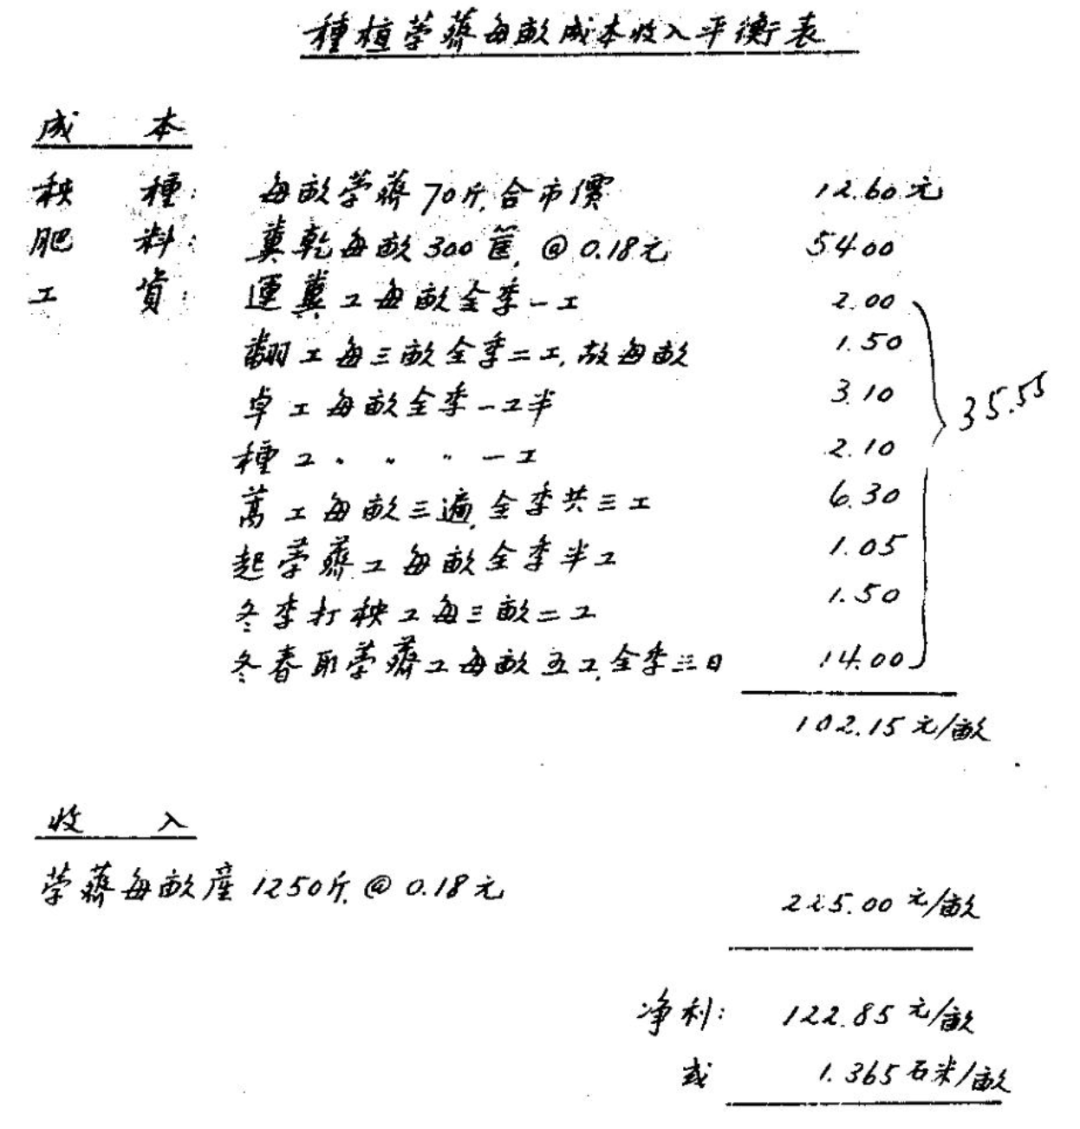 種植荸薺每畝成本收入平衡表
成 本
秧 種: 每畝荸薺70斤,合市價 12.60元
肥 料: 糞乾每畝300筐, @0.18元 54.00
工 資: 運糞工每畝全季一工 2.00
翻工每三畝全季二工,故每畝 1.50
卓工每畝全季一工半 3.10
種工〃 〃 〃 一工 2.10
35.55
萬工每畝三遍,全季共三工 6.30
起荸薺工每畝全季半工 1.05
冬季打秧工每三畝二工 1.50
冬春取荸薺工每畝五工,全季三日 14.00
102.15元/畝
收 入
荸薺每畝產1250斤,@0.18元 225.00元/畝
净利: 122.85元/畝
或 1.365石米/畝